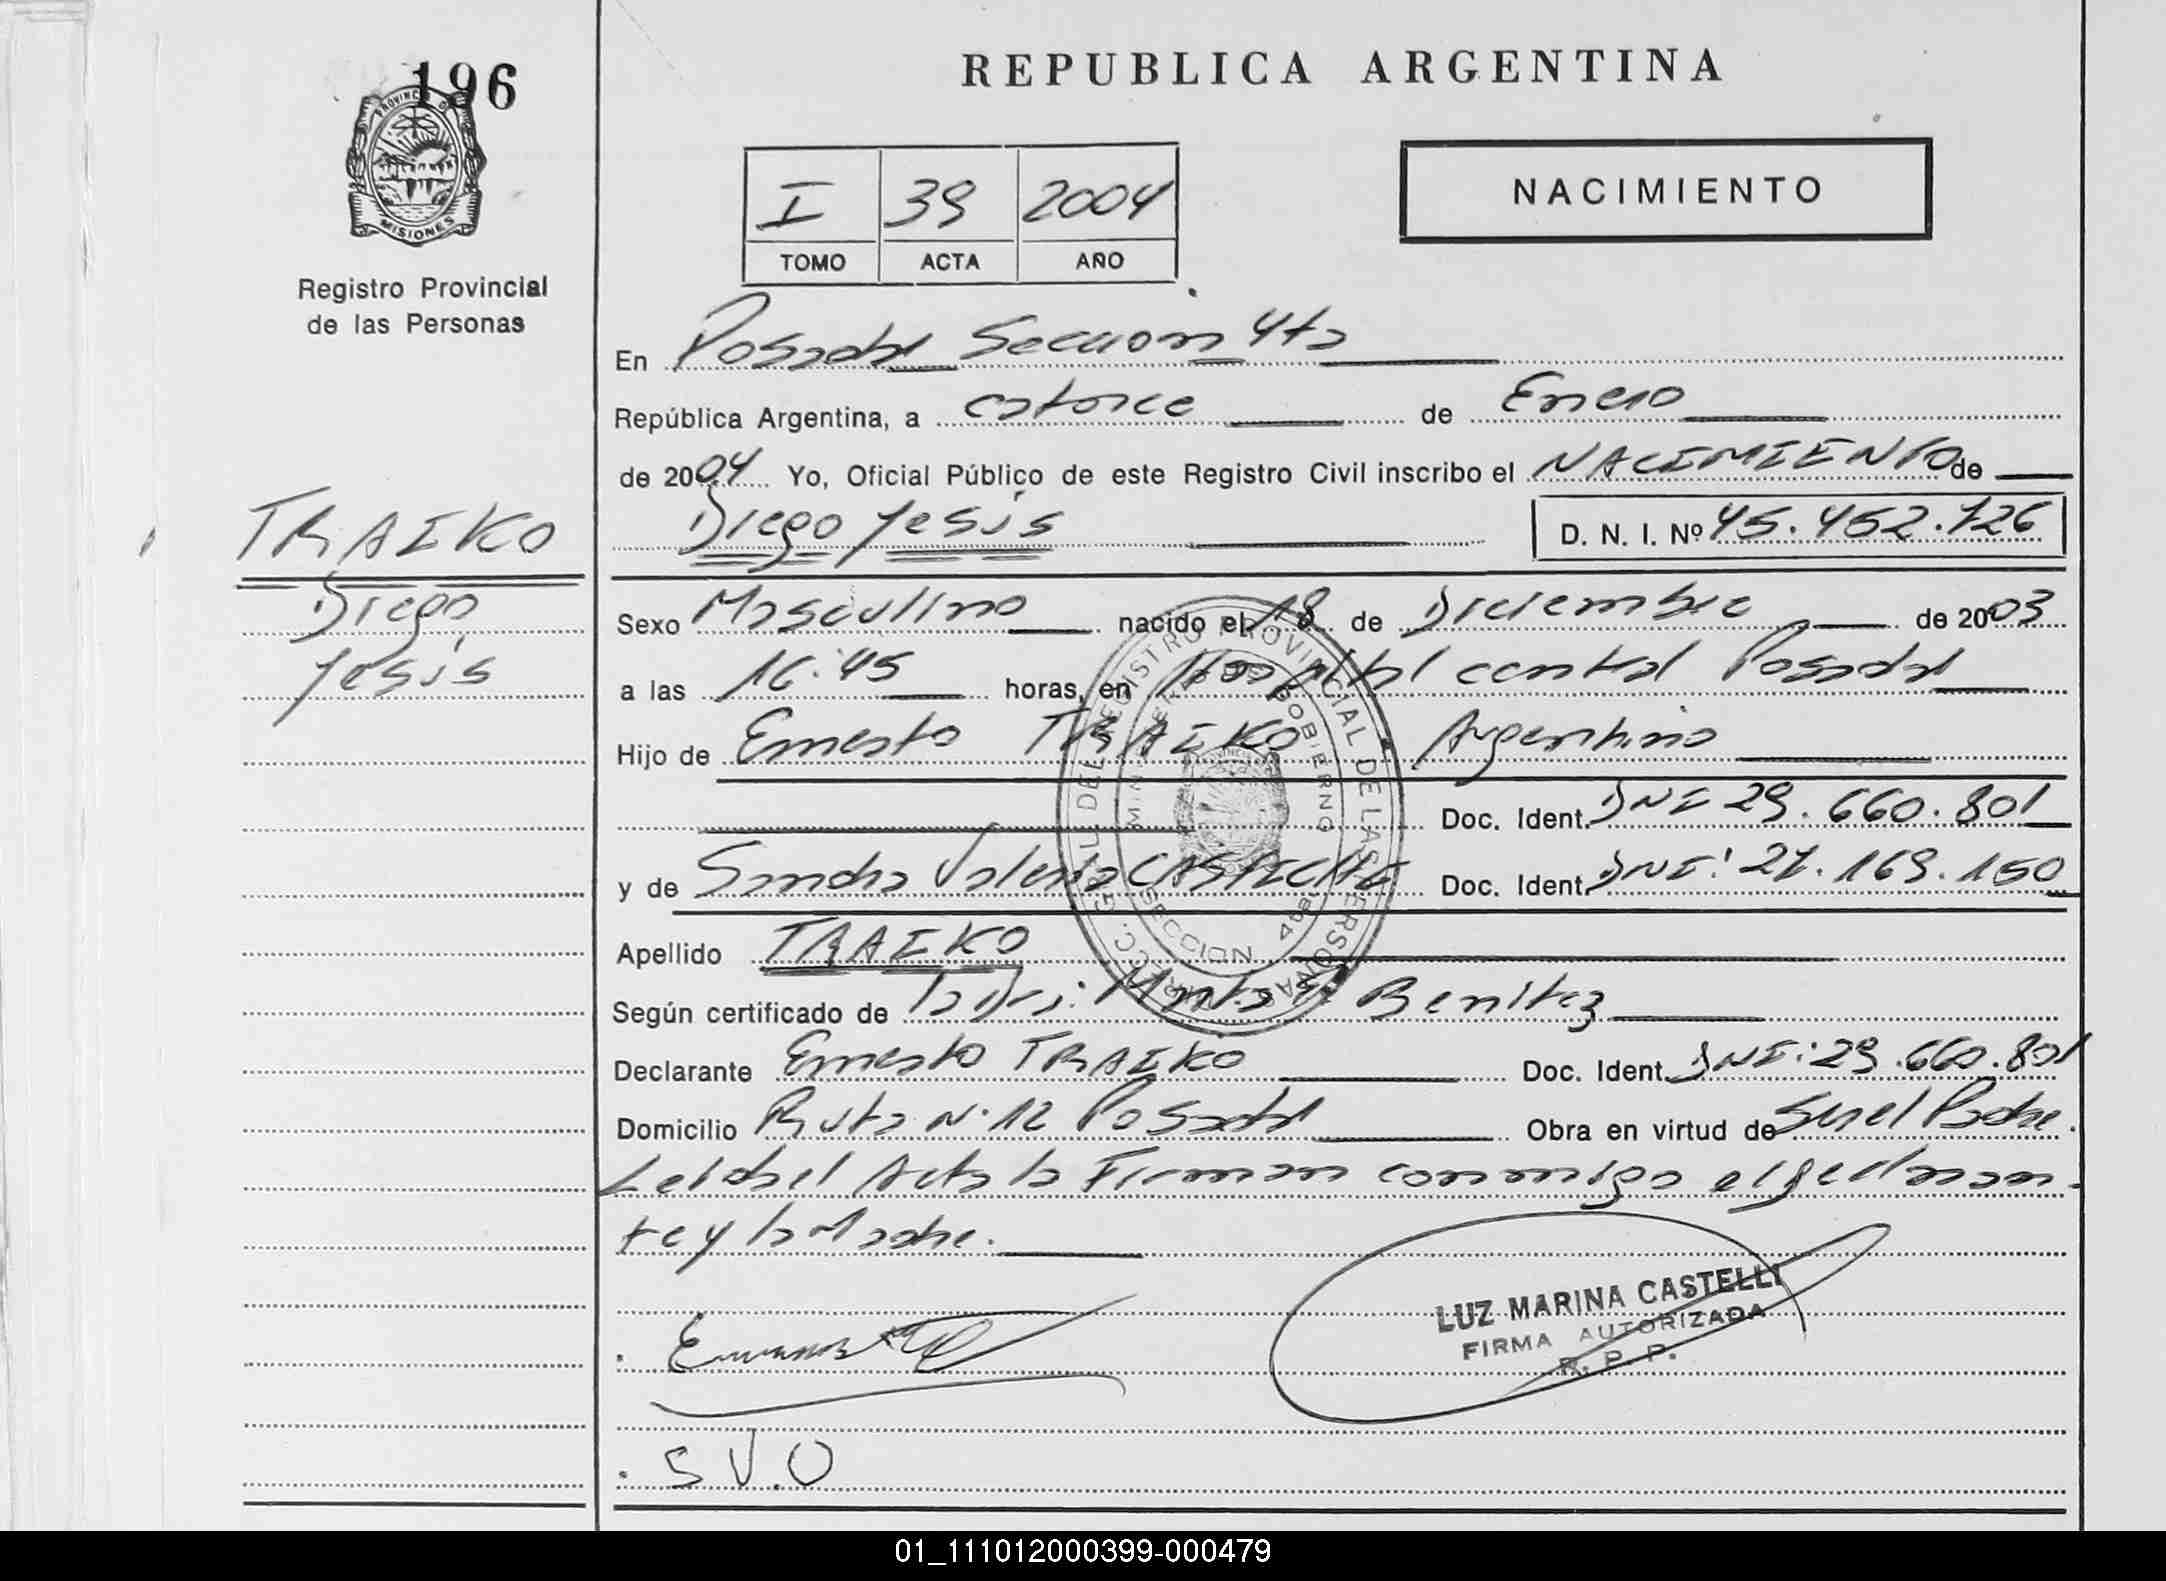 196
PROVINCIA DE
MISIONES
Registro Provincial
de las Personas
REPUBLICA ARGENTINA
NACIMIENTO
I 39 2004
TOMO ACTA AÑO
En Posadas Seccion 4ta
República Argentina, a catorce de Enero
de 2004 Yo, Oficial Público de este Registro Civil inscribo el NACIMIENTO de
Diego Jesús D. N. I. Nº 45.452.726
TRAIKO
Diego
Jesús
Sexo Masculino nacido el 18 de Diciembre de 2003
a las 16:45 horas, en Hospital central Posadas
Hijo de Ernesto TRAIKO Argentino
Doc. Ident. DNI 29.660.801
y de Sandra Valeria Doc. Ident. DNI: 27.169.150
Apellido TRAIKO
Según certificado de la Dra: Benitez
Declarante Ernesto TRAIKO Doc. Ident. DNI: 29.660.801
Domicilio Ruta Nº 12 Posadas Obra en virtud de Ser el Padre.
Leida el Acta la Firman conmigo el declaran-
te y la Madre.
LUZ MARINA CASTELLI
FIRMA AUTORIZADA
R. P. P.
S.V.O
01_111012000399-000479